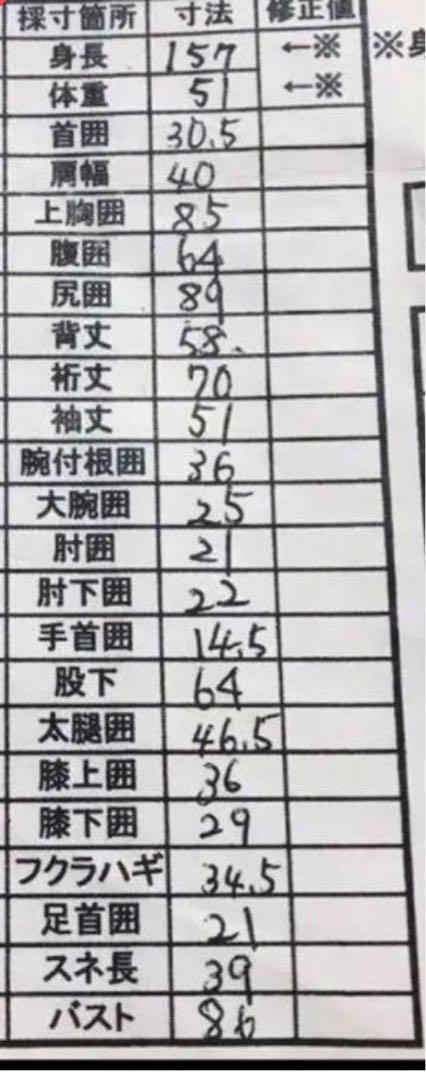 採寸箇所 寸法 修正値
身長 157 ←※ ※身
体重 51 ←※
首囲 30.5
肩幅 40
上胸囲 85
腹囲 64
尻囲 89
背丈 58.
裄丈 70
袖丈 51
腕付根囲 36
大腕囲 25
肘囲 21
肘下囲 22
手首囲 14.5
股下 64
太腿囲 46.5
膝上囲 36
膝下囲 29
フクラハギ 34.5
足首囲 21
スネ長 39
バスト 86